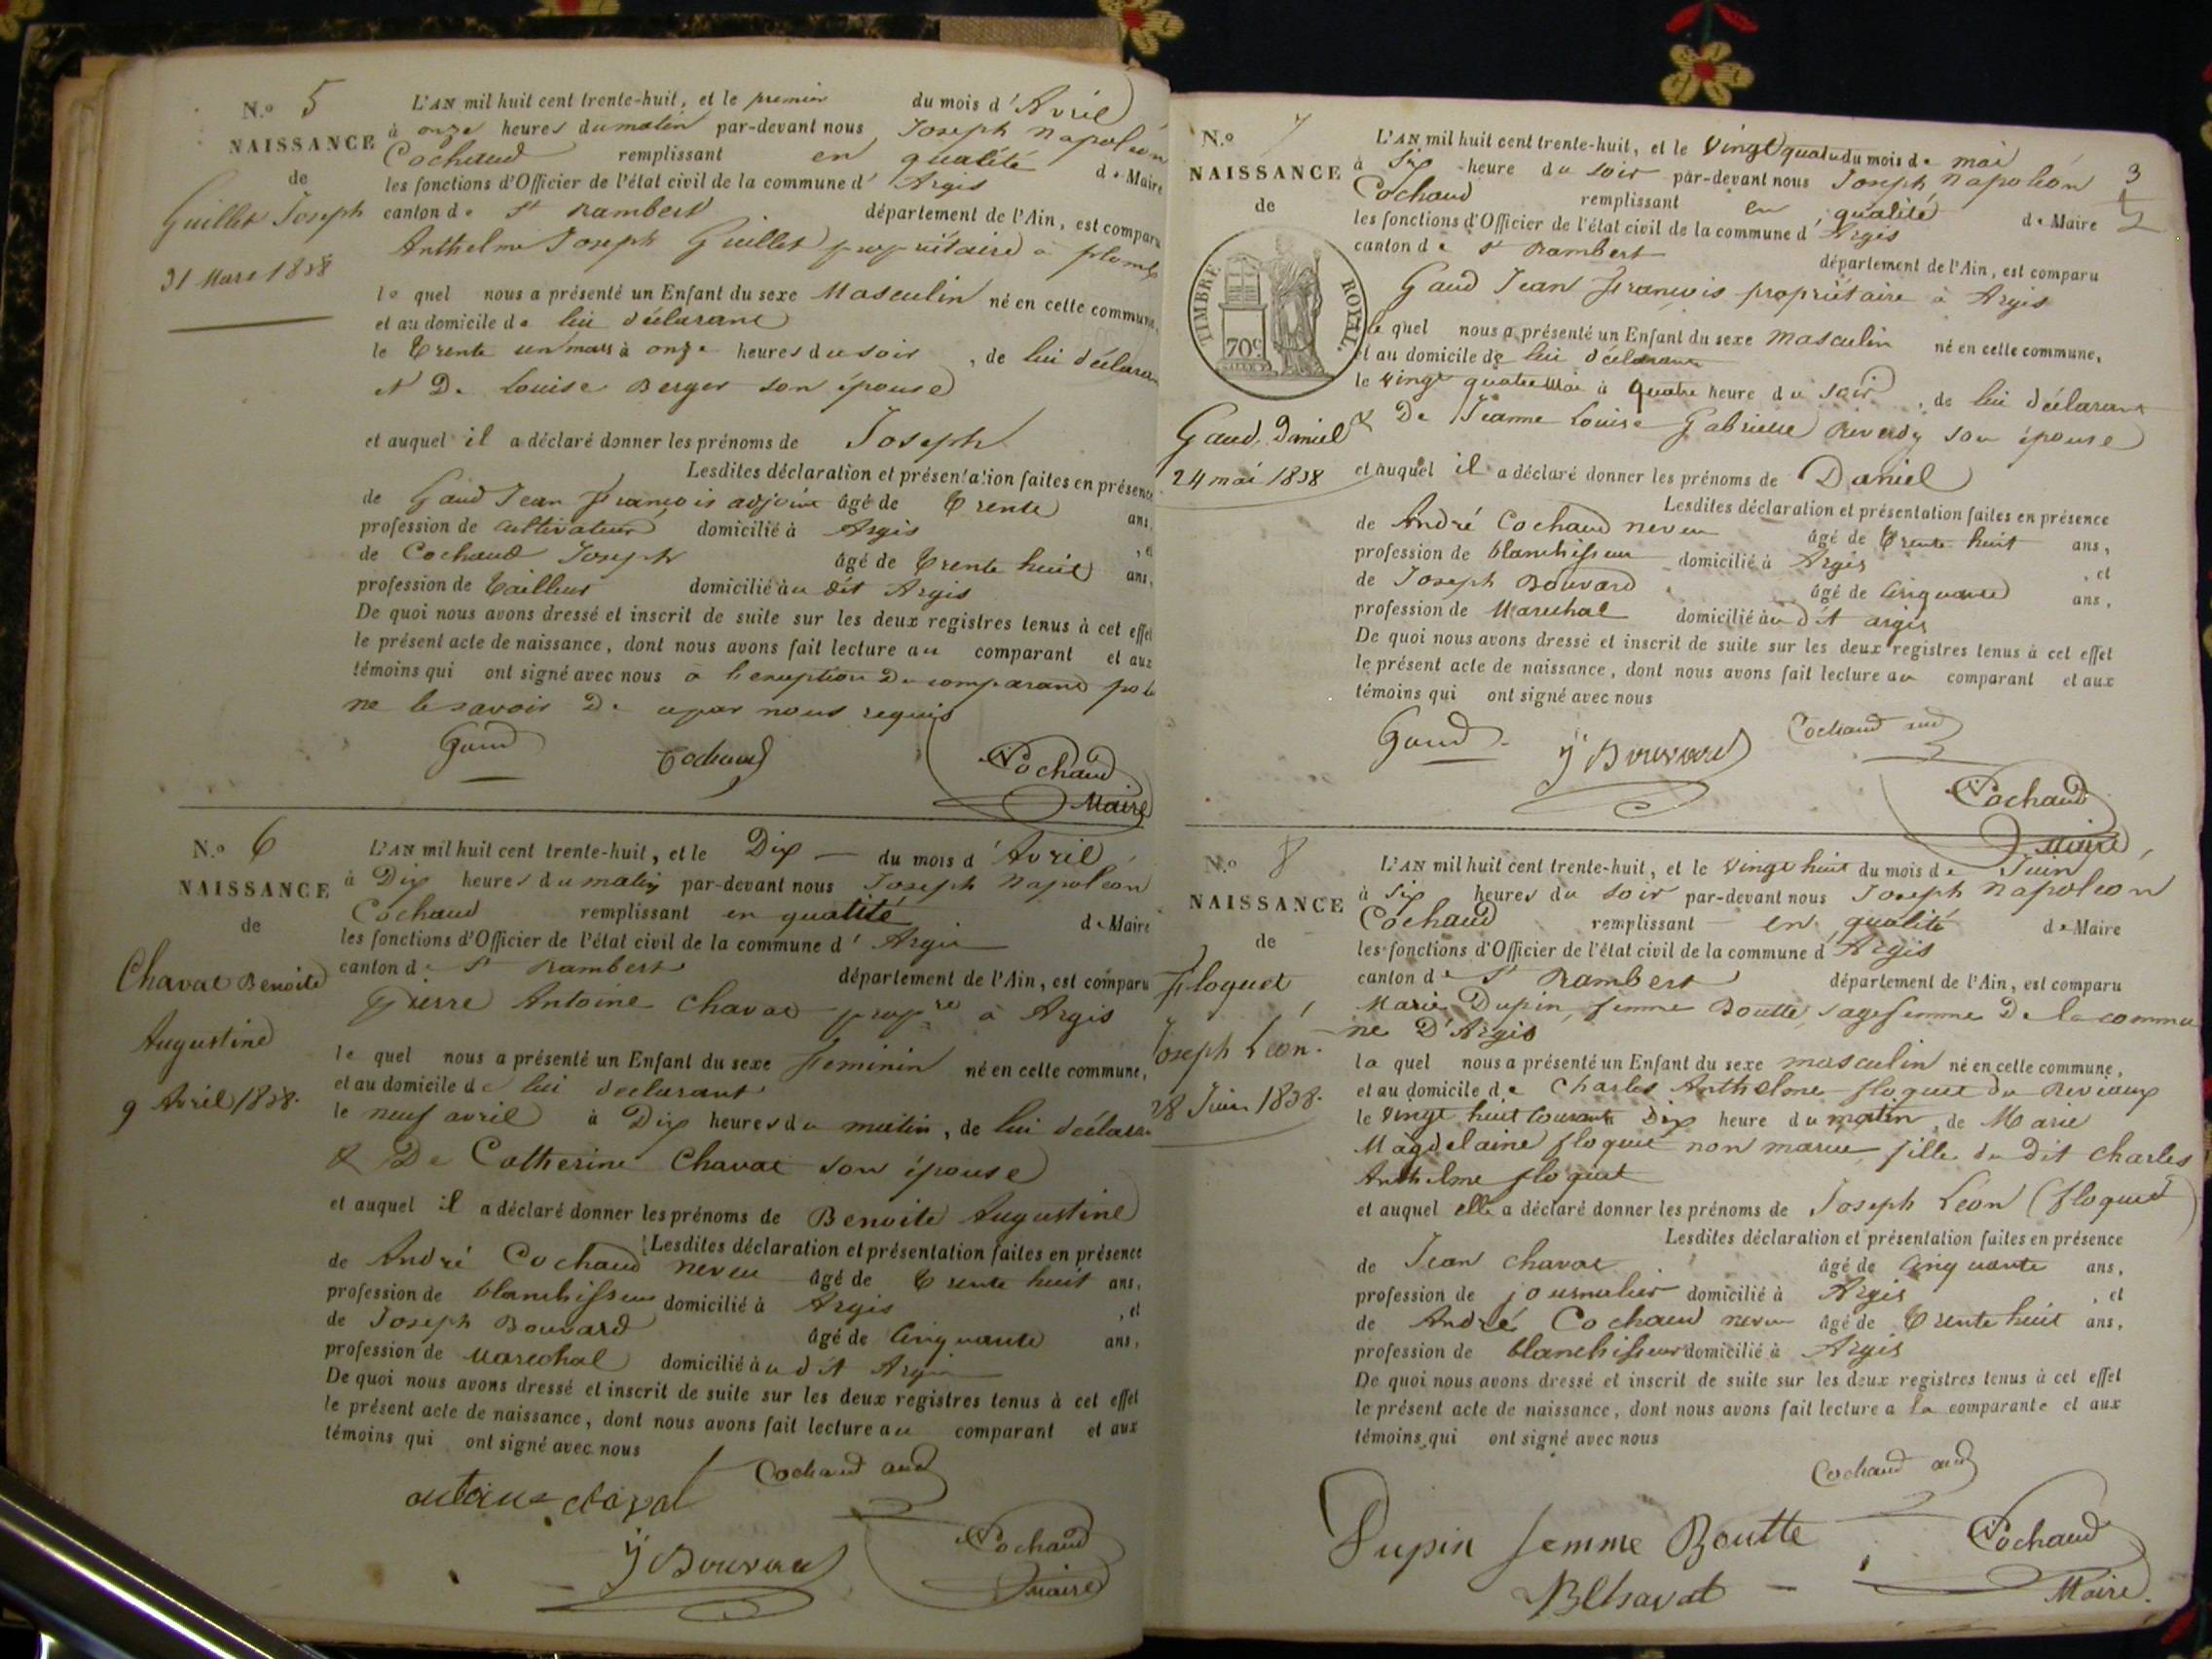 N.o 5
NAISSANCE
de
Guillet Joseph
31 Mars 1838
L'AN mil huit cent trente-huit, et le premier du mois d'Avril
à onze heures du matin par-devant nous Joseph Napoléon
Cochaud remplissant en qualité de Maire
les fonctions d'Officier de l'état civil de la commune d'Argis
canton de St Rambert département de l'Ain, est comparu
Anthelme Joseph Guillet propriétaire à
le quel nous a présenté un Enfant du sexe Masculin né en cette commune,
et au domicile de lui déclarant
le trente un mars à onze heures du soir, de lui déclara
et De Louise Berger son épouse
et auquel il a déclaré donner les prénoms de Joseph
Lesdites déclaration et présentation faites en présence
de Gaud Jean François adjoint âgé de trente ans,
profession de cultivateur domicilié à Argis, et
de Cochaud Joseph âgé de trente huit ans,
profession de tailleur domicilié au dit Argis
De quoi nous avons dressé et inscrit de suite sur les deux registres tenus à cet effet
le présent acte de naissance, dont nous avons fait lecture au comparant et aux
témoins qui ont signé avec nous à l'exception du comparant
ne le savoir De ce par nous requis
Gaud Cochaud Cochaud
Maire
N.o 6
NAISSANCE
de
Chavat Benoite
Augustine
9 Avril 1838.
L'AN mil huit cent trente-huit, et le Dix du mois d'Avril
à Dix heures du matin par-devant nous Joseph Napoléon
Cochaud remplissant en qualité de Maire
les fonctions d'Officier de l'état civil de la commune d'Argis
canton de St Rambert département de l'Ain, est comparu
Pierre Antoine Chavat propre à Argis
le quel nous a présenté un Enfant du sexe feminin né en cette commune,
et au domicile de lui declarant
le neuf avril à Dix heures du matin, de lui déclara
& De Catherine Chavat son épouse
et auquel il a déclaré donner les prénoms de Benoite Augustine
Lesdites déclaration et présentation faites en présence
de André Cochaud neveu âgé de trente huit ans,
profession de blanchisseur domicilié à Argis, et
de Joseph Bouvard âgé de Cinquante ans,
profession de Marechal domicilié au dit Argis
De quoi nous avons dressé et inscrit de suite sur les deux registres tenus à cet effet
le présent acte de naissance, dont nous avons fait lecture au comparant et aux
témoins qui ont signé avec nous
antoine chavat Cochaud and
J Bouvard Cochaud
maire
N.o 7
NAISSANCE
de
TIMBRE ROYAL.
70c
Gaud Daniel
24 mai 1838
3
L'AN mil huit cent trente-huit, et le Vingt quatre du mois de mai
à Six heure du soir par-devant nous Joseph Napoléon
Cochaud remplissant en qualité de Maire
les fonctions d'Officier de l'état civil de la commune d'Argis
canton de St Rambert département de l'Ain, est comparu
Gaud Jean François propriétaire à Argis
le quel nous a présenté un Enfant du sexe masculin né en cette commune,
et au domicile de lui déclarant
le vingt quatre Mai à quatre heure du soir, de lui déclarant
& De Jeanne Louise Gabrielle Reverdy son épouse
et auquel il a déclaré donner les prénoms de Daniel
Lesdites déclaration et présentation faites en présence
de André Cochaud neveu âgé de trente huit ans,
profession de blanchisseur domicilié à Argis, et
de Joseph Bouvard âgé de Cinquante ans,
profession de Marechal domicilié au dit argis
De quoi nous avons dressé et inscrit de suite sur les deux registres tenus à cet effet
le présent acte de naissance, dont nous avons fait lecture au comparant et aux
témoins qui ont signé avec nous
Gaud J Bouvard Cochaud and
Cochaud
maire
N.o 8
NAISSANCE
de
floquet
Joseph Léon.
28 Juin 1838.
L'AN mil huit cent trente-huit, et le Vingt huit du mois de Juin
à six heures du soir par-devant nous Joseph Napoléon
Cochaud remplissant en qualité de Maire
les fonctions d'Officier de l'état civil de la commune d'Argis
canton de St Rambert département de l'Ain, est comparu
Marie Dupin, femme Boutte, sagefemme De la commu
ne D'Argis
la quel nous a présenté un Enfant du sexe masculin né en cette commune,
et au domicile de Charles Anthelme floquet
le Vingt huit Courant Dix heure du matin, de Marie
Magdelaine floquet non mariee fille du dit Charles
Anthelme floquet
et auquel elle a déclaré donner les prénoms de Joseph Léon (floquet)
Lesdites déclaration et présentation faites en présence
de Jean chavat âgé de Cinquante ans,
profession de journalier domicilié à Argis, et
de André Cochaud neveu âgé de trente huit ans,
profession de blanchisseur domicilié à Argis
De quoi nous avons dressé et inscrit de suite sur les deux registres tenus à cet effet
le présent acte de naissance, dont nous avons fait lecture a la comparante et aux
témoins qui ont signé avec nous
Cochaud and
Dupin femme Boutte Cochaud
Chavat Maire.